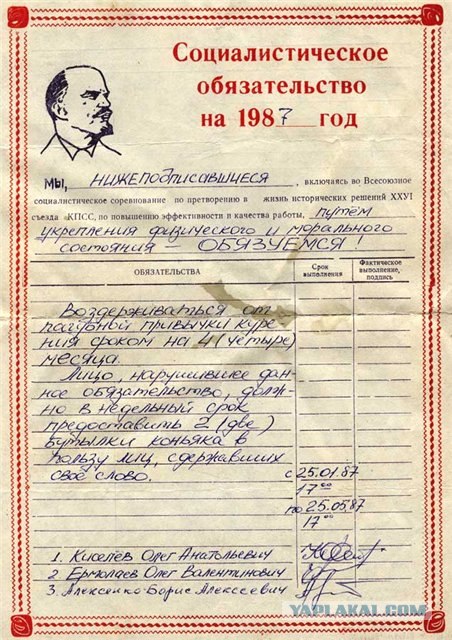 Социалистическое
обязательство
на 1987 год
Мы, нижеподписавшиеся, включаясь во Всесоюзное
социалистическое соревнование по претворению в жизнь исторических решений XXVI
съезда КПСС, по повышению эффективности и качества работы, путём
укрепления физического и морального
состояния – ОБЯЗУЕМСЯ!
ОБЯЗАТЕЛЬСТВА
Срок
выполнения
Фактическое
выполнение,
подпись
Воздерживаться от
пагубной привычки куре-
ния сроком на 4 (четыре)
месяца.
Лицо, нарушившее дан-
ное обязательство, долж-
но в недельный срок
предоставить 2 (две)
бутылки коньяка в
пользу лиц, сдержавших
своё слово.
с 25.01.87
17 00
по 25.05.87
17 00
1. Киселёв Олег Анатольевич
2. Ермолаев Олег Валентинович
3. Алексенко Борис Алексеевич
YAPLAKAL.COM